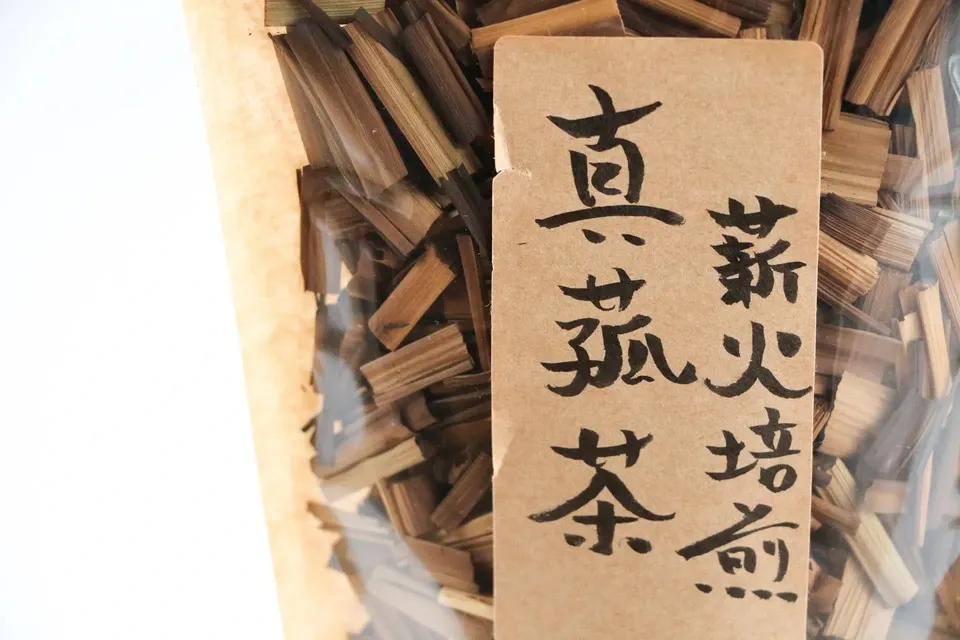 薪火培煎
真菰茶